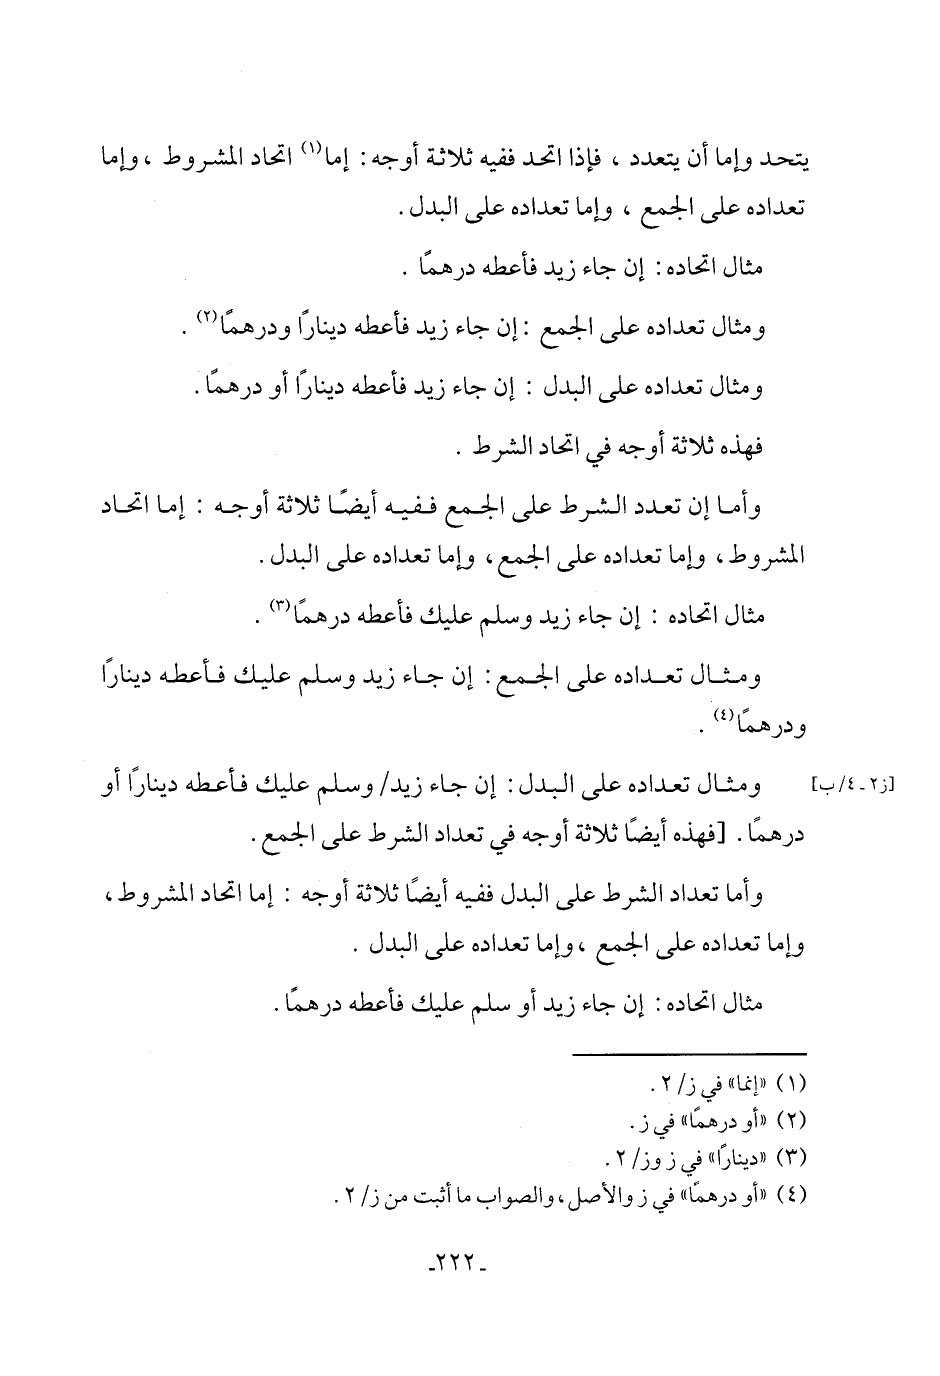 يتحد وإما أن يتعدد ، فإذا اتحد ففيه ثلاثة أوجه : إما(١) اتحاد المشروط ، وإما
تعداده على الجمع ، وإما تعداده على البدل .
مثال اتحاده : إن جاء زيد فأعطه درهمًا .
ومثال تعداده على الجمع : إن جاء زيد فأعطه دينارًا ودرهمًا(٢) .
ومثال تعداده على البدل : إن جاء زيد فأعطه دينارًا أو درهمًا .
فهذه ثلاثة أوجه في اتحاد الشرط .
وأما إن تعدد الشرط على الجمع ففيه أيضًا ثلاثة أوجه : إما اتحاد
المشروط ، وإما تعداده على الجمع ، وإما تعداده على البدل .
مثال اتحاده : إن جاء زيد وسلم عليك فأعطه درهمًا(٣) .
ومثال تعداده على الجمع : إن جاء زيد وسلم عليك فأعطه دينارًا
ودرهمًا(٤) .
[ز٢ ـ ٤/ب] ومثال تعداده على البدل : إن جاء زيد/ وسلم عليك فأعطه دينارًا أو
درهمًا . [فهذه أيضًا ثلاثة أوجه في تعداد الشرط على الجمع .
وأما تعداد الشرط على البدل ففيه أيضًا ثلاثة أوجه : إما اتحاد المشروط ،
وإما تعداده على الجمع ، وإما تعداده على البدل .
مثال اتحاده : إن جاء زيد أو سلم عليك فأعطه درهمًا .
(١) «إنما» في ز/ ٢ .
(٢) «أو درهمًا» في ز .
(٣) «دينارًا» في ز وز/ ٢ .
(٤) «أو درهمًا» في ز والأصل ، والصواب ما أثبت من ز/ ٢ .
ـ ٢٢٢ ـ